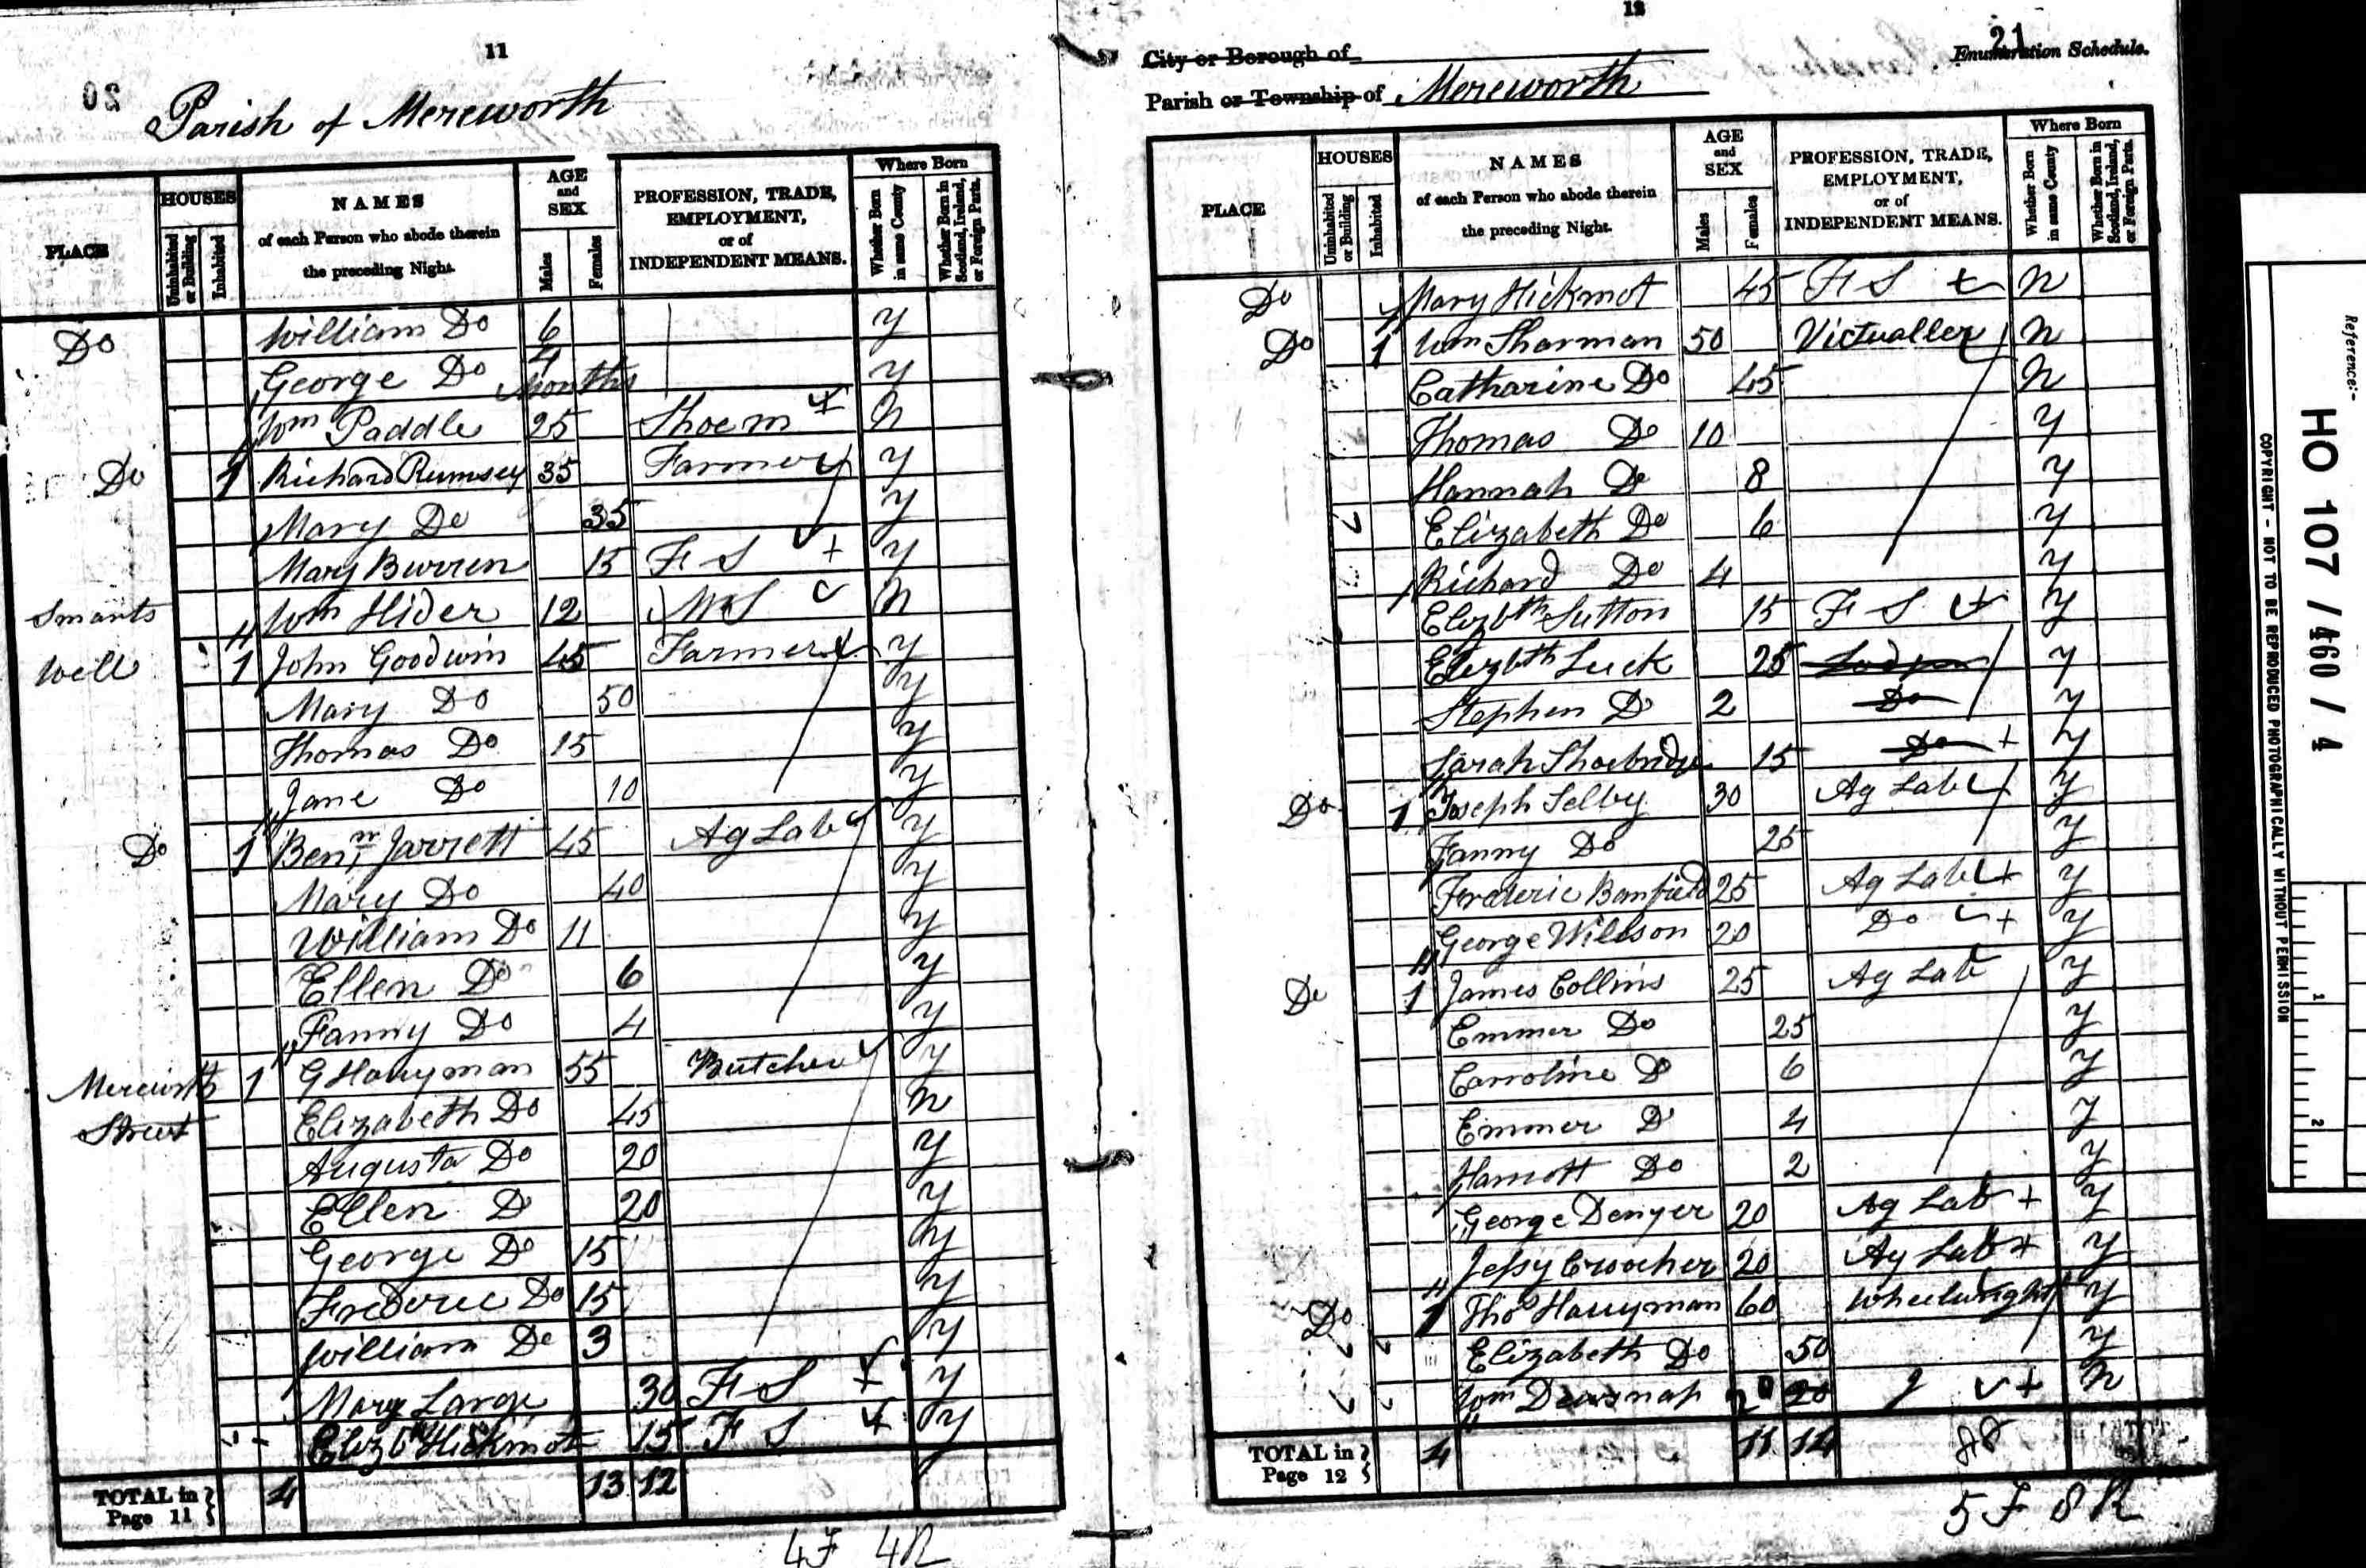 11
20
Parish of Mereworth
PLACE
HOUSES
Uninhabited or Building
Inhabited
NAMES
of each Person who abode therein
the preceding Night.
AGE
and
SEX
Males
Females
PROFESSION, TRADE,
EMPLOYMENT,
or of
INDEPENDENT MEANS.
Where Born
Whether Born in same County
Whether Born in Scotland, Ireland, or Foreign Parts.
Do William Do 6 y
George Do 4 Months y
Wm Paddle 25 Shoe m N
Do 1 Richard Rumsey 35 Farmer y
Mary Do 35 y
Mary Burren 15 F S + y
Smarts Wm Hider 12 M S N
Well 1 John Goodwin 45 Farmer y
Mary Do 50 y
Thomas Do 15 y
Jane Do 10 y
Do 1 Benjn Jarrett 45 Ag Lab y
Mary Do 40 y
William Do 11 y
Ellen Do 6 y
Fanny Do 4 y
Mereworth 1 G Harryman 55 Butcher y
Street Elizabeth Do 45 N
Augusta Do 20 y
Ellen D 20 y
George Do 15 y
Frederic Do 15 y
William Do 3 y
Mary Large 30 F S + y
Elizbth Hickmot 15 F S + y
TOTAL in
Page 11 4 13 12
4F 4R
12
21
City or Borough of
Enumeration Schedule.
Parish or Township of Mereworth
PLACE
HOUSES
Uninhabited or Building
Inhabited
NAMES
of each Person who abode therein
the preceding Night.
AGE
and
SEX
Males
Females
PROFESSION, TRADE,
EMPLOYMENT,
or of
INDEPENDENT MEANS.
Where Born
Whether Born in same County
Whether Born in Scotland, Ireland, or Foreign Parts.
Do Mary Hickmot 45 F S + N
Do 1 Wm Sharman 50 Victualler N
Catharine Do 45 N
Thomas Do 10 y
Hannah Do 8 y
Elizabeth Do 6 y
Richard Do 4 y
Elizbth Sutton 15 F S + y
Elizbth Luck 25 y
Stephen Do 2 Do y
Sarah Shoebridge 15 Do + y
Do 1 Joseph Selby 30 Ag Lab y
Fanny Do 25 y
Frederic Banfield 25 Ag Lab + y
George Willson 20 Do + y
Do 1 James Collins 25 Ag Lab y
Emmer Do 25 y
Carroline D 6 y
Emmer D 4 y
Harriott Do 2 y
George Denyer 20 Ag Lab + y
Jessy Croucher 20 Ag Lab + y
Do 1 Thos Harryman 60 Wheelwright y
Elizabeth Do 50 y
Wm Dewsnap 20 20 J + N
TOTAL in
Page 12 4 11 14
5F 8R
Reference:-
HO 107 / 460 / 4
COPYRIGHT - NOT TO BE REPRODUCED PHOTOGRAPHICALLY WITHOUT PERMISSION
1
2